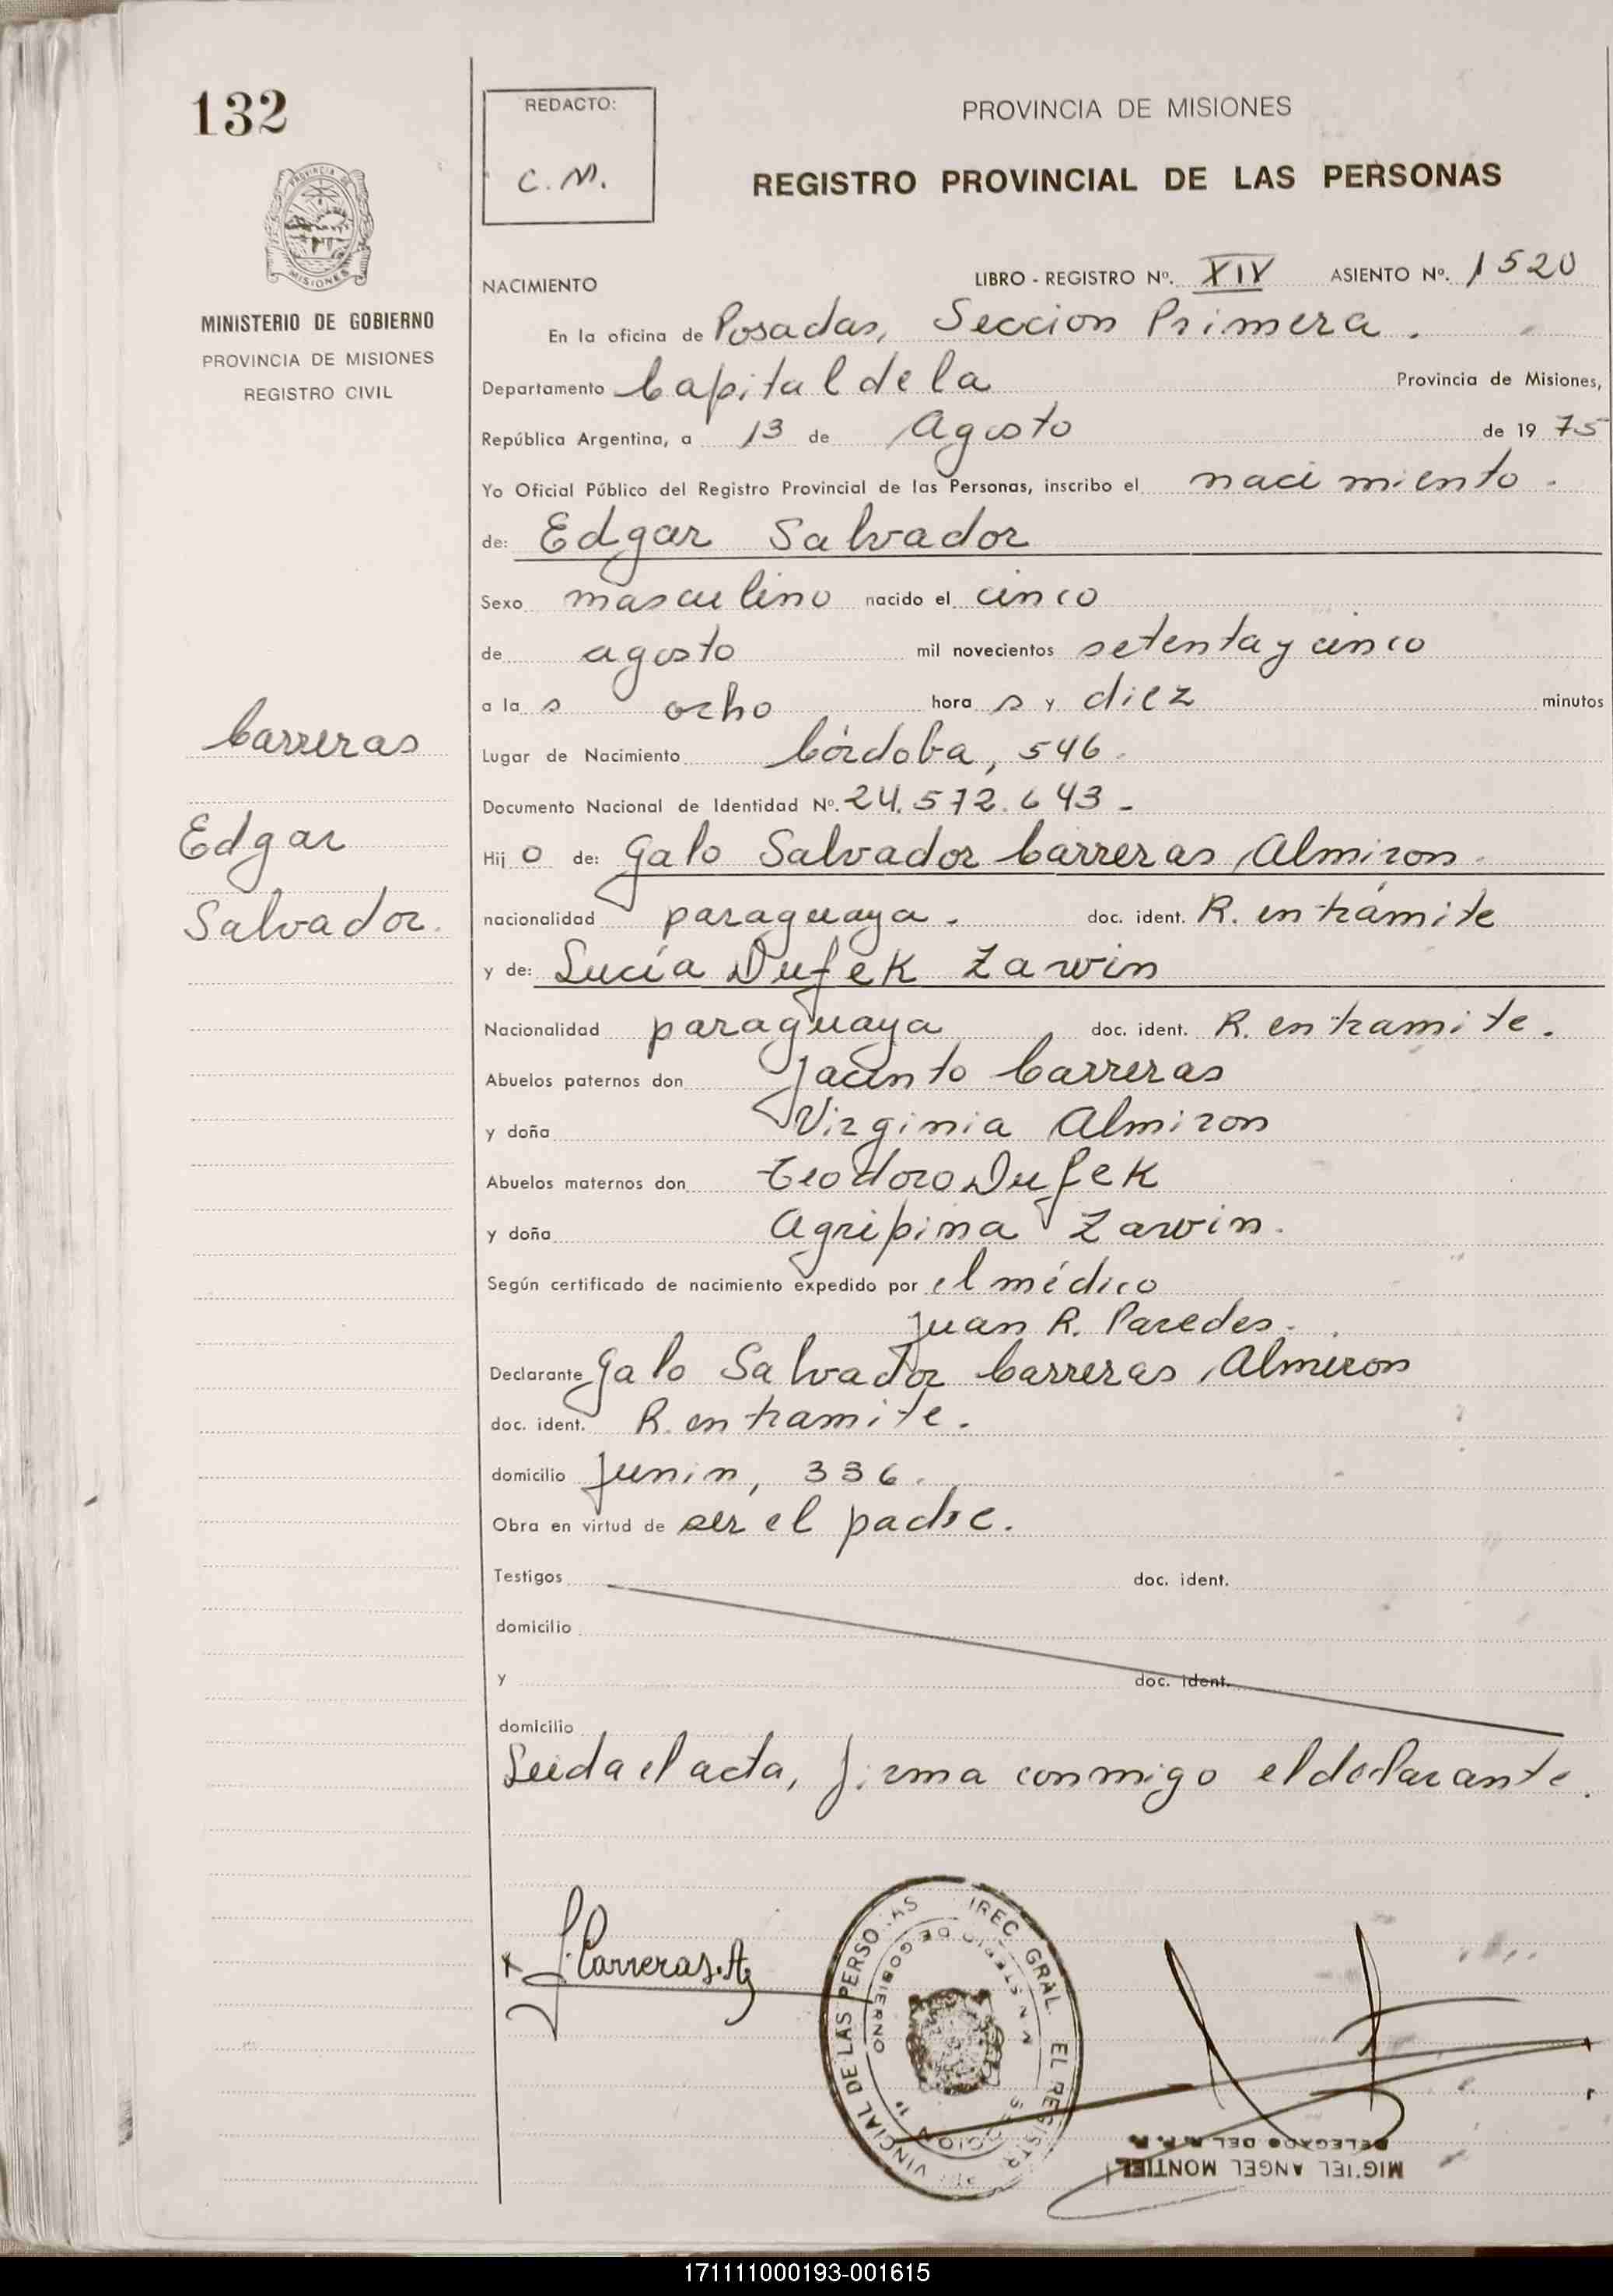 132
REDACTO:
C. M.
PROVINCIA DE MISIONES
REGISTRO PROVINCIAL DE LAS PERSONAS
MINISTERIO DE GOBIERNO
PROVINCIA DE MISIONES
REGISTRO CIVIL
NACIMIENTO LIBRO - REGISTRO Nº. XIV ASIENTO Nº. 1520
En la oficina de Posadas, Seccion Primera.
Departamento Capital de la Provincia de Misiones,
República Argentina, a 13 de Agosto de 1975
Yo Oficial Público del Registro Provincial de las Personas, inscribo el nacimiento.
de: Edgar Salvador
Sexo masculino nacido el cinco
de agosto mil novecientos setenta y cinco
a la s ocho hora s y diez minutos
Carreras
Edgar
Salvador.
Lugar de Nacimiento Córdoba, 546.
Documento Nacional de Identidad Nº. 24.572.643-
Hij o de: Galo Salvador Carreras Almiron.
nacionalidad paraguaya. doc. ident. R. en trámite
y de: Lucía Dufek Zarvin
Nacionalidad paraguaya doc. ident. R. en tramite.
Abuelos paternos don Jacinto Carreras
y doña Virginia Almiron
Abuelos maternos don Teodoro Dufek
y doña Agripina Zarvin.
Según certificado de nacimiento expedido por el médico
Juan R. Paredes.
Declarante Galo Salvador Carreras Almiron
doc. ident. R. en tramite.
domicilio Junin, 336.
Obra en virtud de ser el padre.
Testigos doc. ident.
domicilio
y doc. ident.
domicilio
Leida el acta, firma conmigo el declarante.
Carreras A.
MINISTERIO DE GOBIERNO
MIGUEL ANGEL MONTIEL
DELEGADO DEL R. P. P.
171111000193-001615